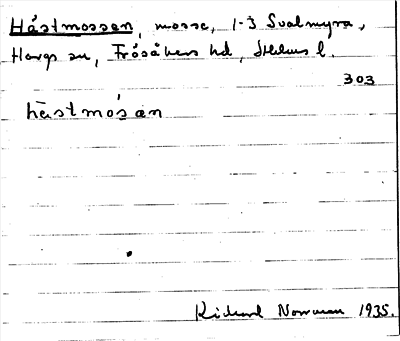 Hästmossen, mosse, 1-3 Svalmyra,
Havrs sn, Frösåkers hd, Sthlms l.
303
hästmòsàn
Richard Norrman 1935.